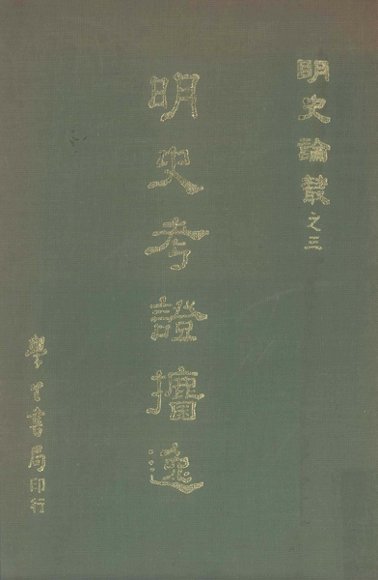 明史論叢之三
明史考證攟逸
學生書局印行